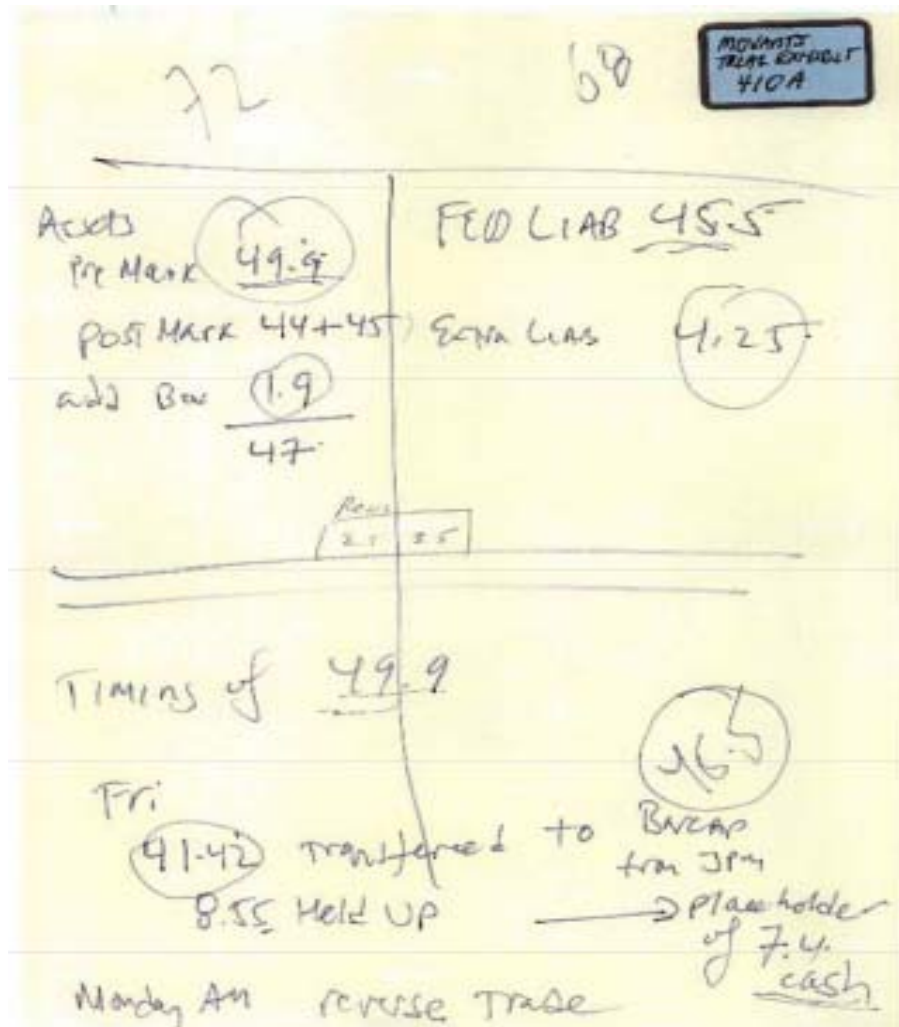 MOVANTS
TRIAL EXHIBIT
410A
72
Assets
Pre Mark 49.9
post Mark 44+45
add Box 1.9
47
FED LIAB 45.5
Extra LIAB 4.25
TIMING of 49.9
Fri
41-42 transferred to BARCAP
from JPM
8.55 Held UP → Placeholder
of 7.4.
cash
Monday AM reverse Trade